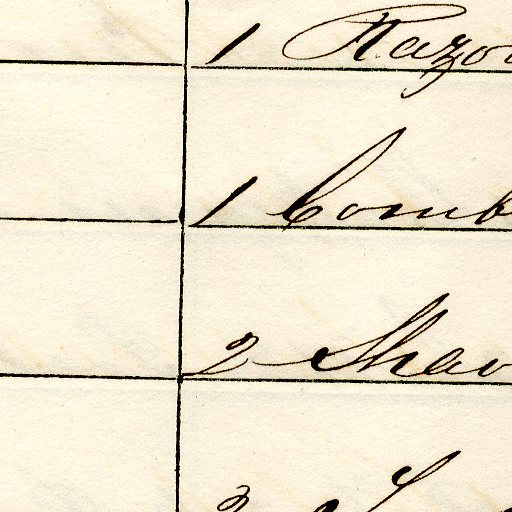 1 Razo
1 Comb
2 Shav